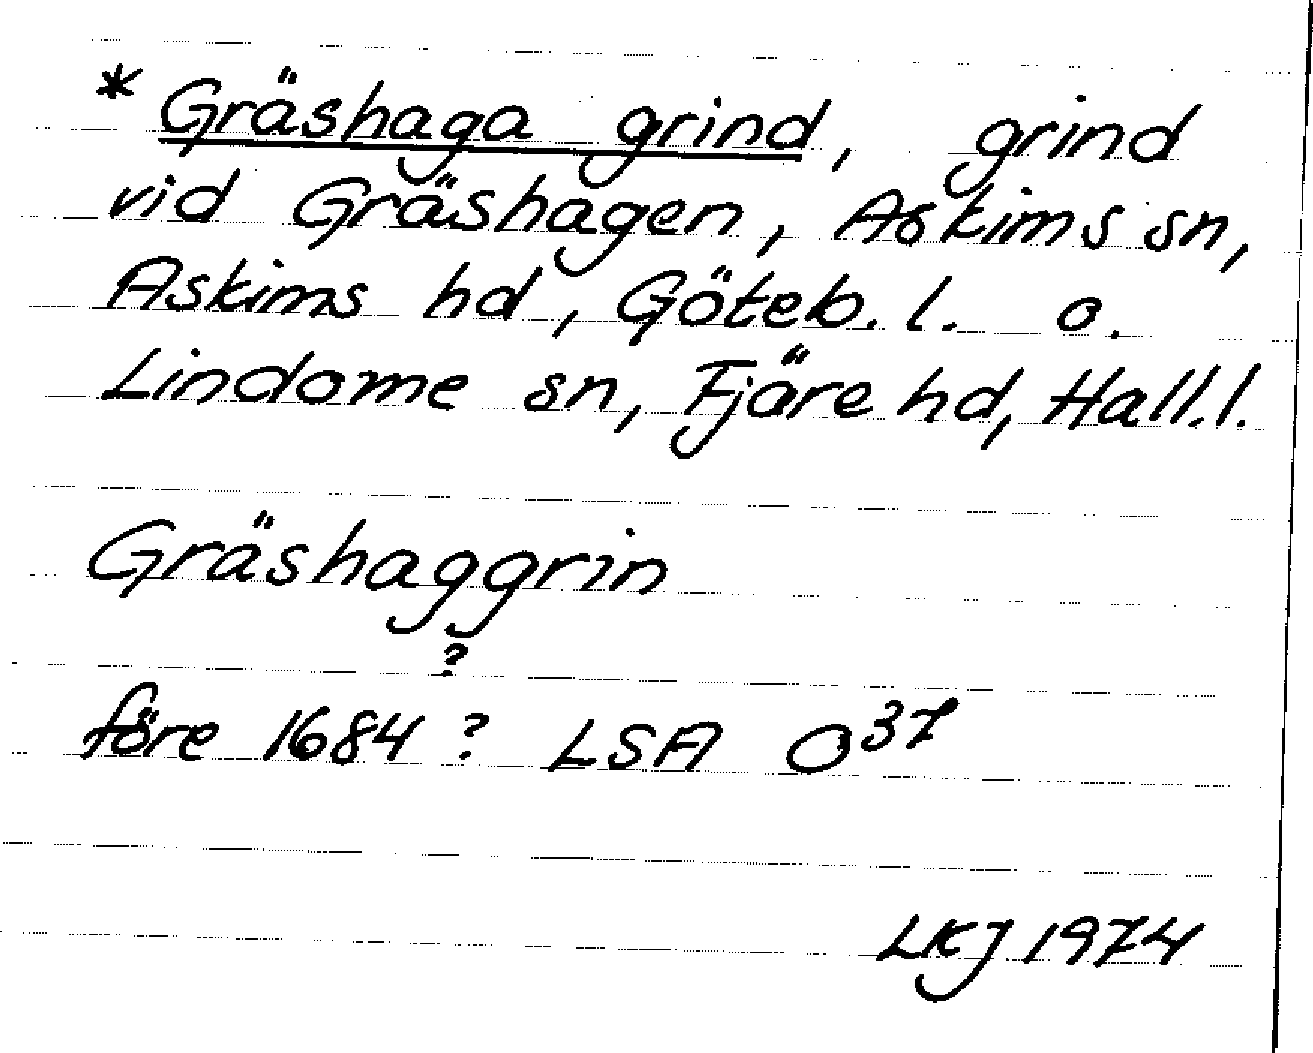 * Gräshaga grind, grind
vid Gräshagen, Askims sn,
Askims hd, Göteb. l. o.
Lindome sn, Fjäre hd, Hall. l.
Gräshaggrin
?
före 1684 ? LSA O³⁷
LKJ 1974